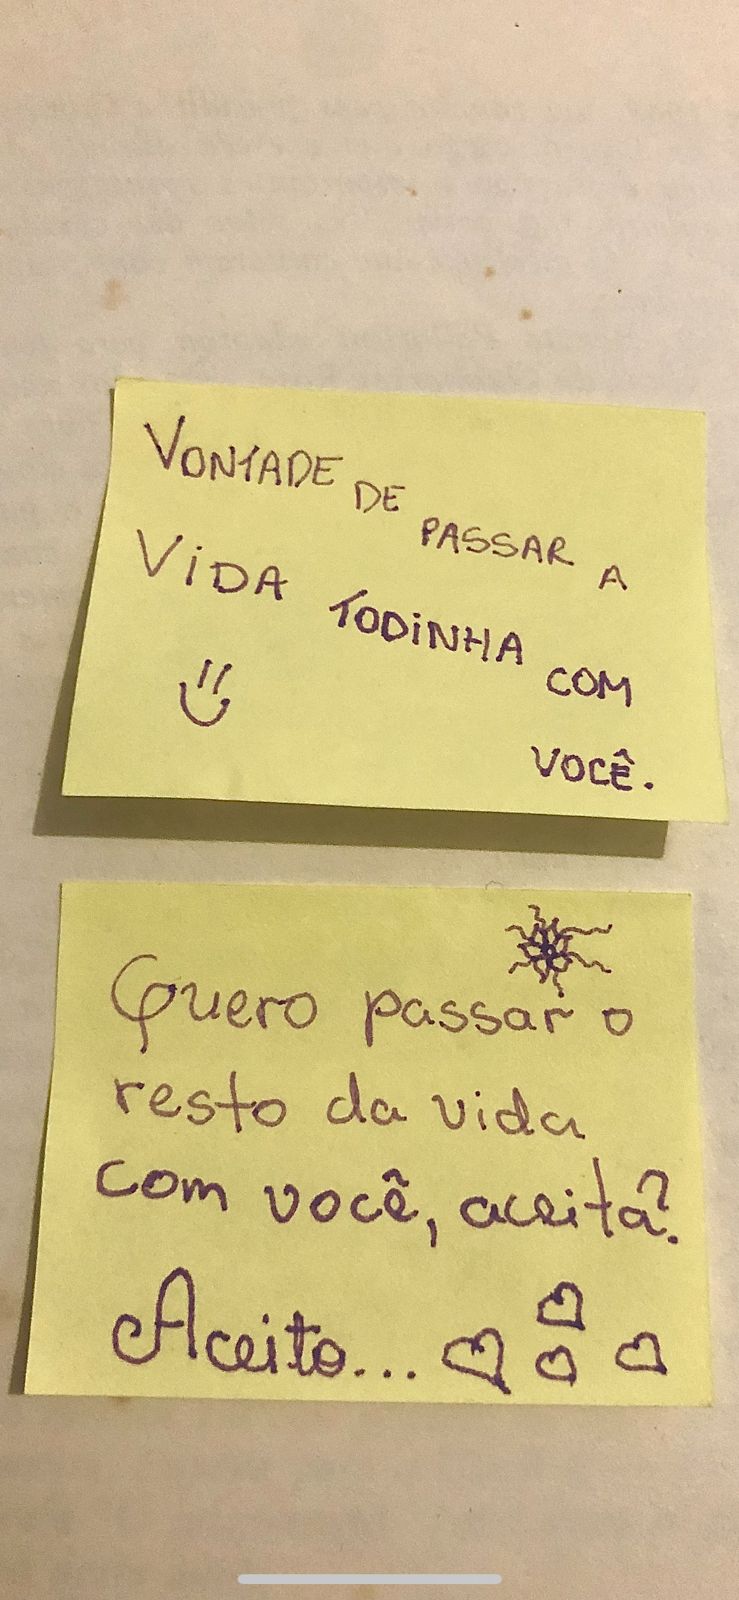 VONTADE DE PASSAR A
VIDA TODINHA COM
VOCÊ.
Quero passar o
resto da vida
com você, aceita?
Aceito...